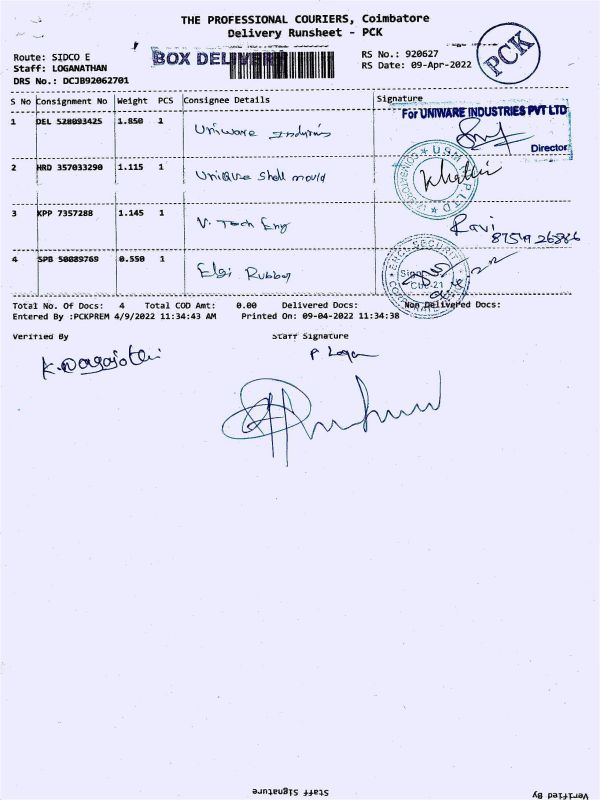 THE PROFESSIONAL COURIERS, Coimbatore
Delivery Runsheet - PCK
PCK
Route: SIDCO E
BOX DELIVERY
RS No.: 920627
Staff: LOGANATHAN
RS Date: 09-Apr-2022
DRS No.: DCJB92062701
S No Consignment No Weight PCS Consignee Details Signature
For UNIWARE INDUSTRIES PVT LTD
1 DEL 528093425 1.850 1 Uniware Industries
Director
2 HRD 357033290 1.115 1 Unique Shell mould
3 KPP 7357288 1.145 1 V. Tech Eng Ravi
4 SPB 50089769 0.550 1 Elgi Rubber
Total No. Of Docs: 4 Total COD Amt: 0.00 Delivered Docs: Non Delivered Docs:
Entered By :PCKPREM 4/9/2022 11:34:43 AM Printed On: 09-04-2022 11:34:38
Verified By Staff Signature
P Logan
Staff Signature Verified By